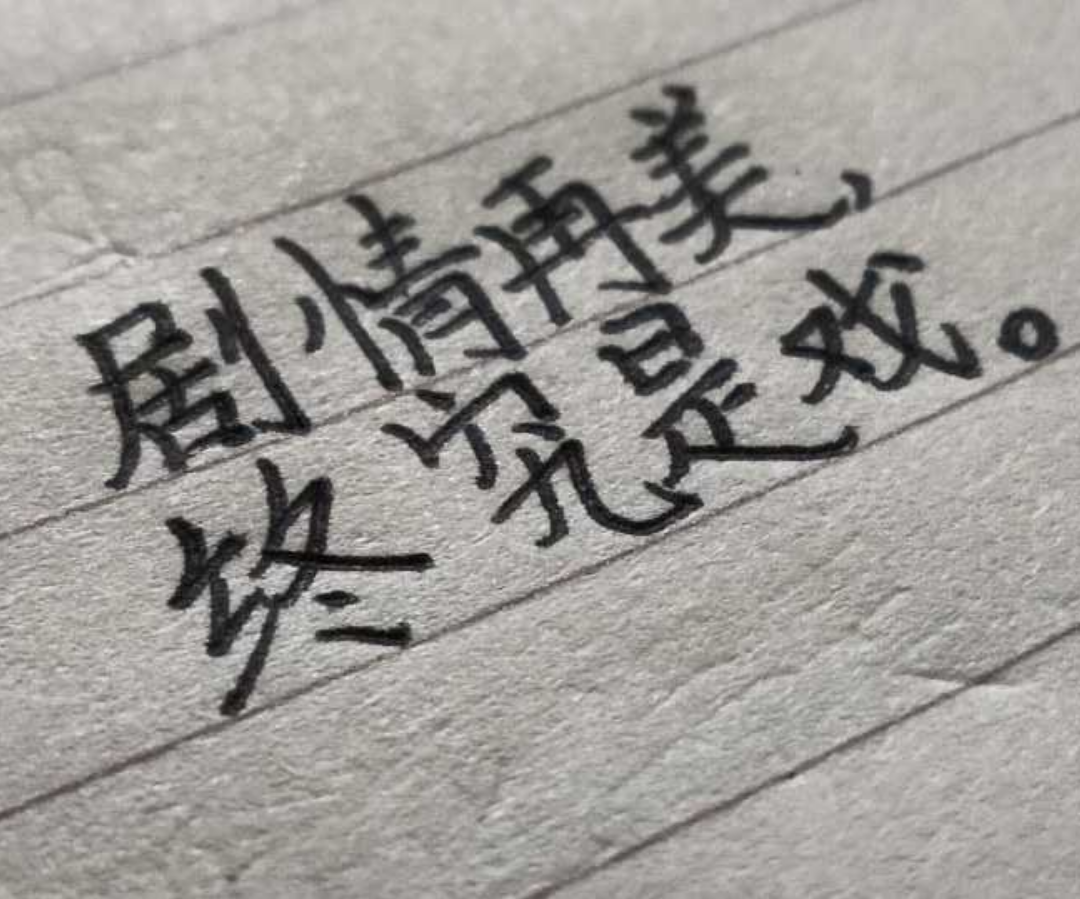 剧情再美，
终究是戏。